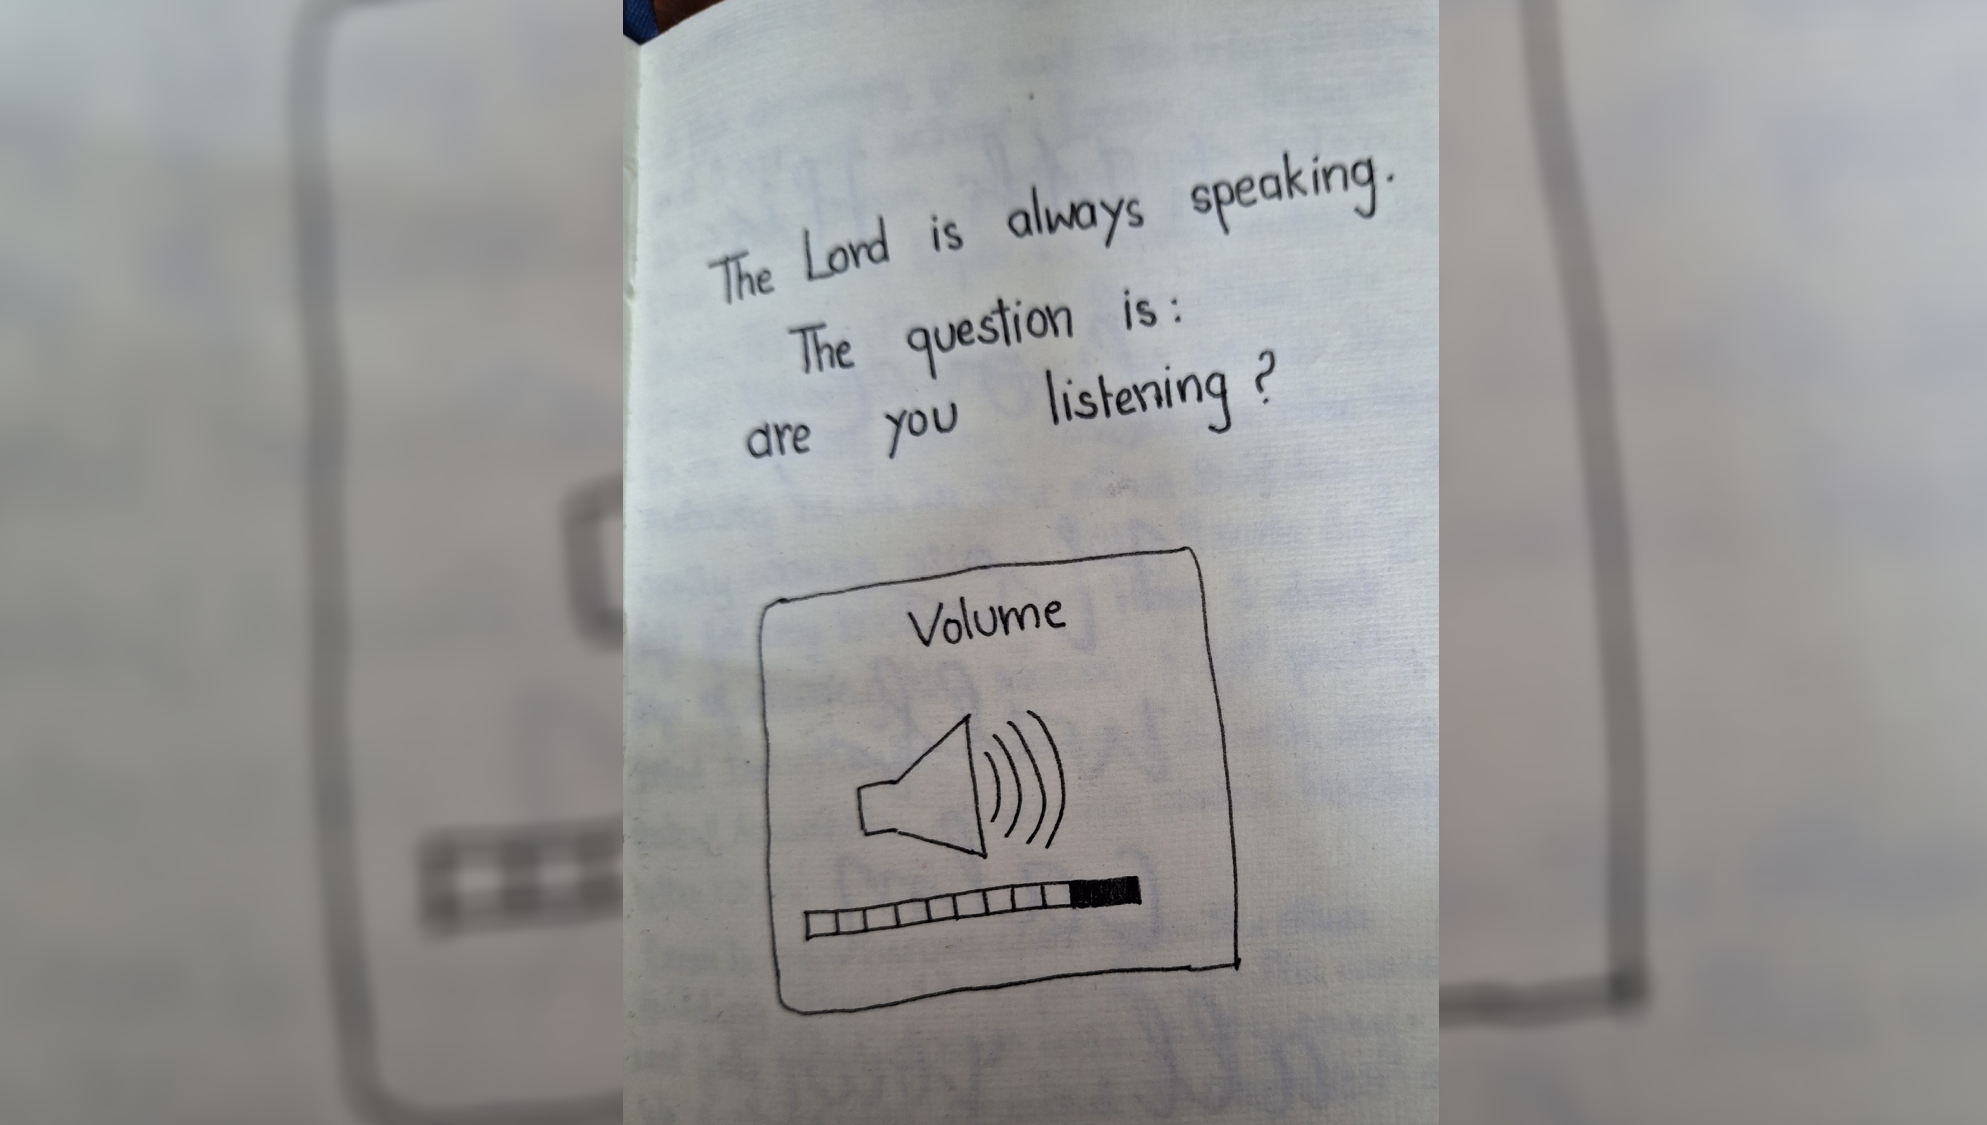 The Lord is always speaking.
The question is:
are you listening?
Volume